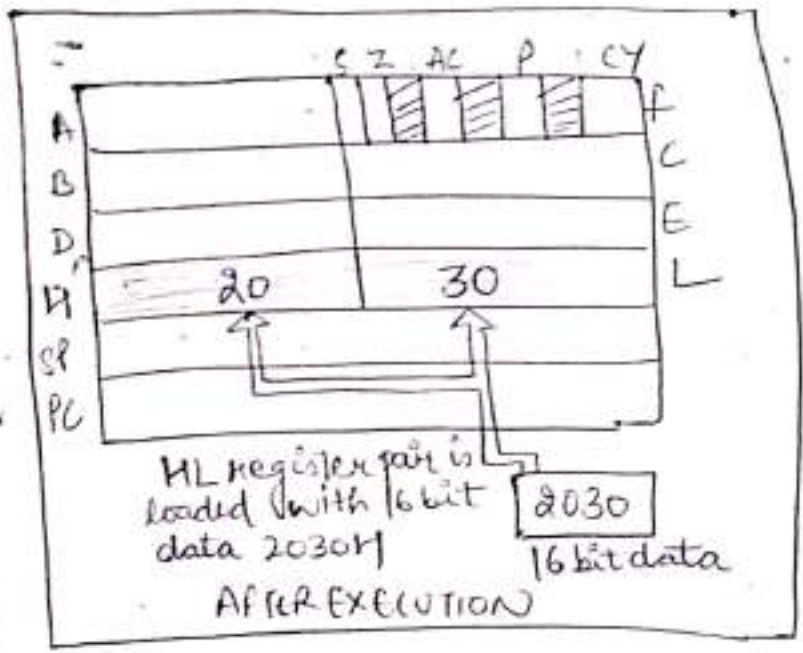 S Z AC P CY
A F
B C
D E
H 20 30 L
SP
PC
HL register pair is
loaded with 16 bit
data 2030H
2030
16 bit data
AFTER EXECUTION